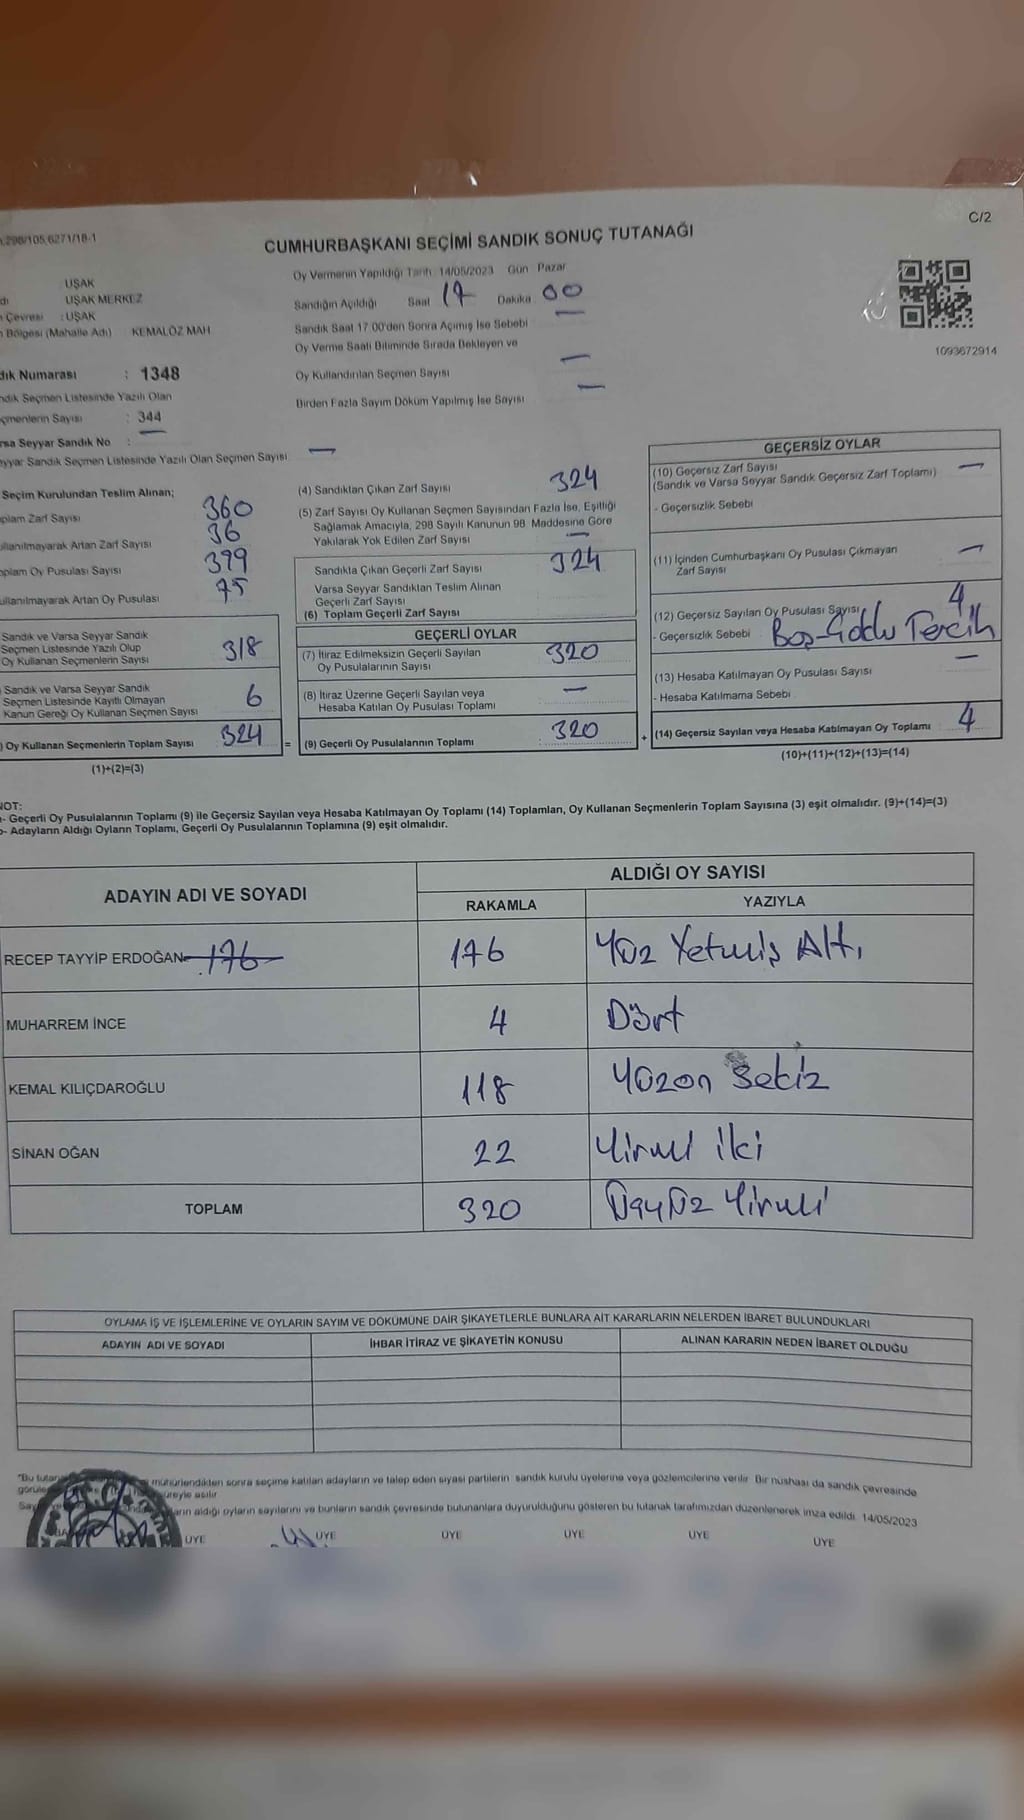 C/2
298/105,6271/18-1
CUMHURBAŞKANI SEÇİMİ SANDIK SONUÇ TUTANAĞI
: UŞAK
UŞAK MERKEZ
Çevresi : UŞAK
Bölgesi (Mahalle Adı) KEMALÖZ MAH
dık Numarası : 1348
ndık Seçmen Listesinde Yazılı Olan
çmenlerin Sayısı : 344
rsa Seyyar Sandık No : —
yyar Sandık Seçmen Listesinde Yazılı Olan Seçmen Sayısı —
Oy Vermenin Yapıldığı Tarih 14/05/2023 Gün Pazar
Sandığın Açıldığı Saat 17 Dakika 00
Sandık Saat 17 00'den Sonra Açımış İse Sebebi —
Oy Verme Saati Bitiminde Sırada Bekleyen ve
Oy Kullandırılan Seçmen Sayısı —
Birden Fazla Sayım Döküm Yapılmış İse Sayısı —
1093672914
Seçim Kurulundan Teslim Alınan;
plam Zarf Sayısı 360
ullanılmayarak Artan Zarf Sayısı 36
oplam Oy Pusulası Sayısı 399
ullanılmayarak Artan Oy Pusulası 75
Sandık ve Varsa Seyyar Sandık
Seçmen Listesinde Yazılı Olup
Oy Kullanan Seçmenlerin Sayısı 318
Sandık ve Varsa Seyyar Sandık
Seçmen Listesinde Kayıtlı Olmayan
Kanun Gereği Oy Kullanan Seçmen Sayısı 6
) Oy Kullanan Seçmenlerin Toplam Sayısı 324 =
(1)+(2)=(3)
(4) Sandıktan Çıkan Zarf Sayısı 324
(5) Zarf Sayısı Oy Kullanan Seçmen Sayısından Fazla İse, Eşitliği
Sağlamak Amacıyla, 298 Sayılı Kanunun 98. Maddesine Göre
Yakılarak Yok Edilen Zarf Sayısı —
Sandıkta Çıkan Geçerli Zarf Sayısı 324
Varsa Seyyar Sandıktan Teslim Alınan
Geçerli Zarf Sayısı
(6) Toplam Geçerli Zarf Sayısı
GEÇERLİ OYLAR
(7) İtiraz Edilmeksizin Geçerli Sayılan
Oy Pusulalarının Sayısı 320
(8) İtiraz Üzerine Geçerli Sayılan veya
Hesaba Katılan Oy Pusulası Toplamı —
(9) Geçerli Oy Pusulalarının Toplamı 320 +
GEÇERSİZ OYLAR
(10) Geçersiz Zarf Sayısı
(Sandık ve Varsa Seyyar Sandık Geçersiz Zarf Toplamı) —
- Geçersizlik Sebebi
(11) İçinden Cumhurbaşkanı Oy Pusulası Çıkmayan
Zarf Sayısı —
(12) Geçersiz Sayılan Oy Pusulası Sayısı 4
- Geçersizlik Sebebi Boş- Tercih
(13) Hesaba Katılmayan Oy Pusulası Sayısı —
- Hesaba Katılmama Sebebi
(14) Geçersiz Sayılan veya Hesaba Katılmayan Oy Toplamı 4
(10)+(11)+(12)+(13)=(14)
NOT:
- Geçerli Oy Pusulalarının Toplamı (9) ile Geçersiz Sayılan veya Hesaba Katılmayan Oy Toplamı (14) Toplamları, Oy Kullanan Seçmenlerin Toplam Sayısına (3) eşit olmalıdır. (9)+(14)=(3)
- Adayların Aldığı Oyların Toplamı, Geçerli Oy Pusulalarının Toplamına (9) eşit olmalıdır.
ADAYIN ADI VE SOYADI
ALDIĞI OY SAYISI
RAKAMLA YAZIYLA
RECEP TAYYİP ERDOĞAN 176 176 Yüz Yetmiş Altı
MUHARREM İNCE 4 Dört
KEMAL KILIÇDAROĞLU 118 Yüzon Sekiz
SİNAN OĞAN 22 Yirmi iki
TOPLAM 320 Üçyüz Yirmi
OYLAMA İŞ VE İŞLEMLERİNE VE OYLARIN SAYIM VE DÖKÜMÜNE DAİR ŞİKAYETLERLE BUNLARA AİT KARARLARIN NELERDEN İBARET BULUNDUKLARI
ADAYIN ADI VE SOYADI İHBAR İTİRAZ VE ŞİKAYETİN KONUSU ALINAN KARARIN NEDEN İBARET OLDUĞU
"Bu tutan mühürlendikten sonra seçime katılan adayların ve talep eden siyasi partilerin sandık kurulu üyelerine veya gözlemcilerine verilir Bir nüshası da sandık çevresinde
görüle süreyle asılır
Say ların aldığı oyların sayılarını ve bunların sandık çevresinde bulunanlara duyurulduğunu gösteren bu tutanak tarafımızdan düzenlenerek imza edildi. 14/05/2023
ÜYE ÜYE ÜYE ÜYE ÜYE ÜYE